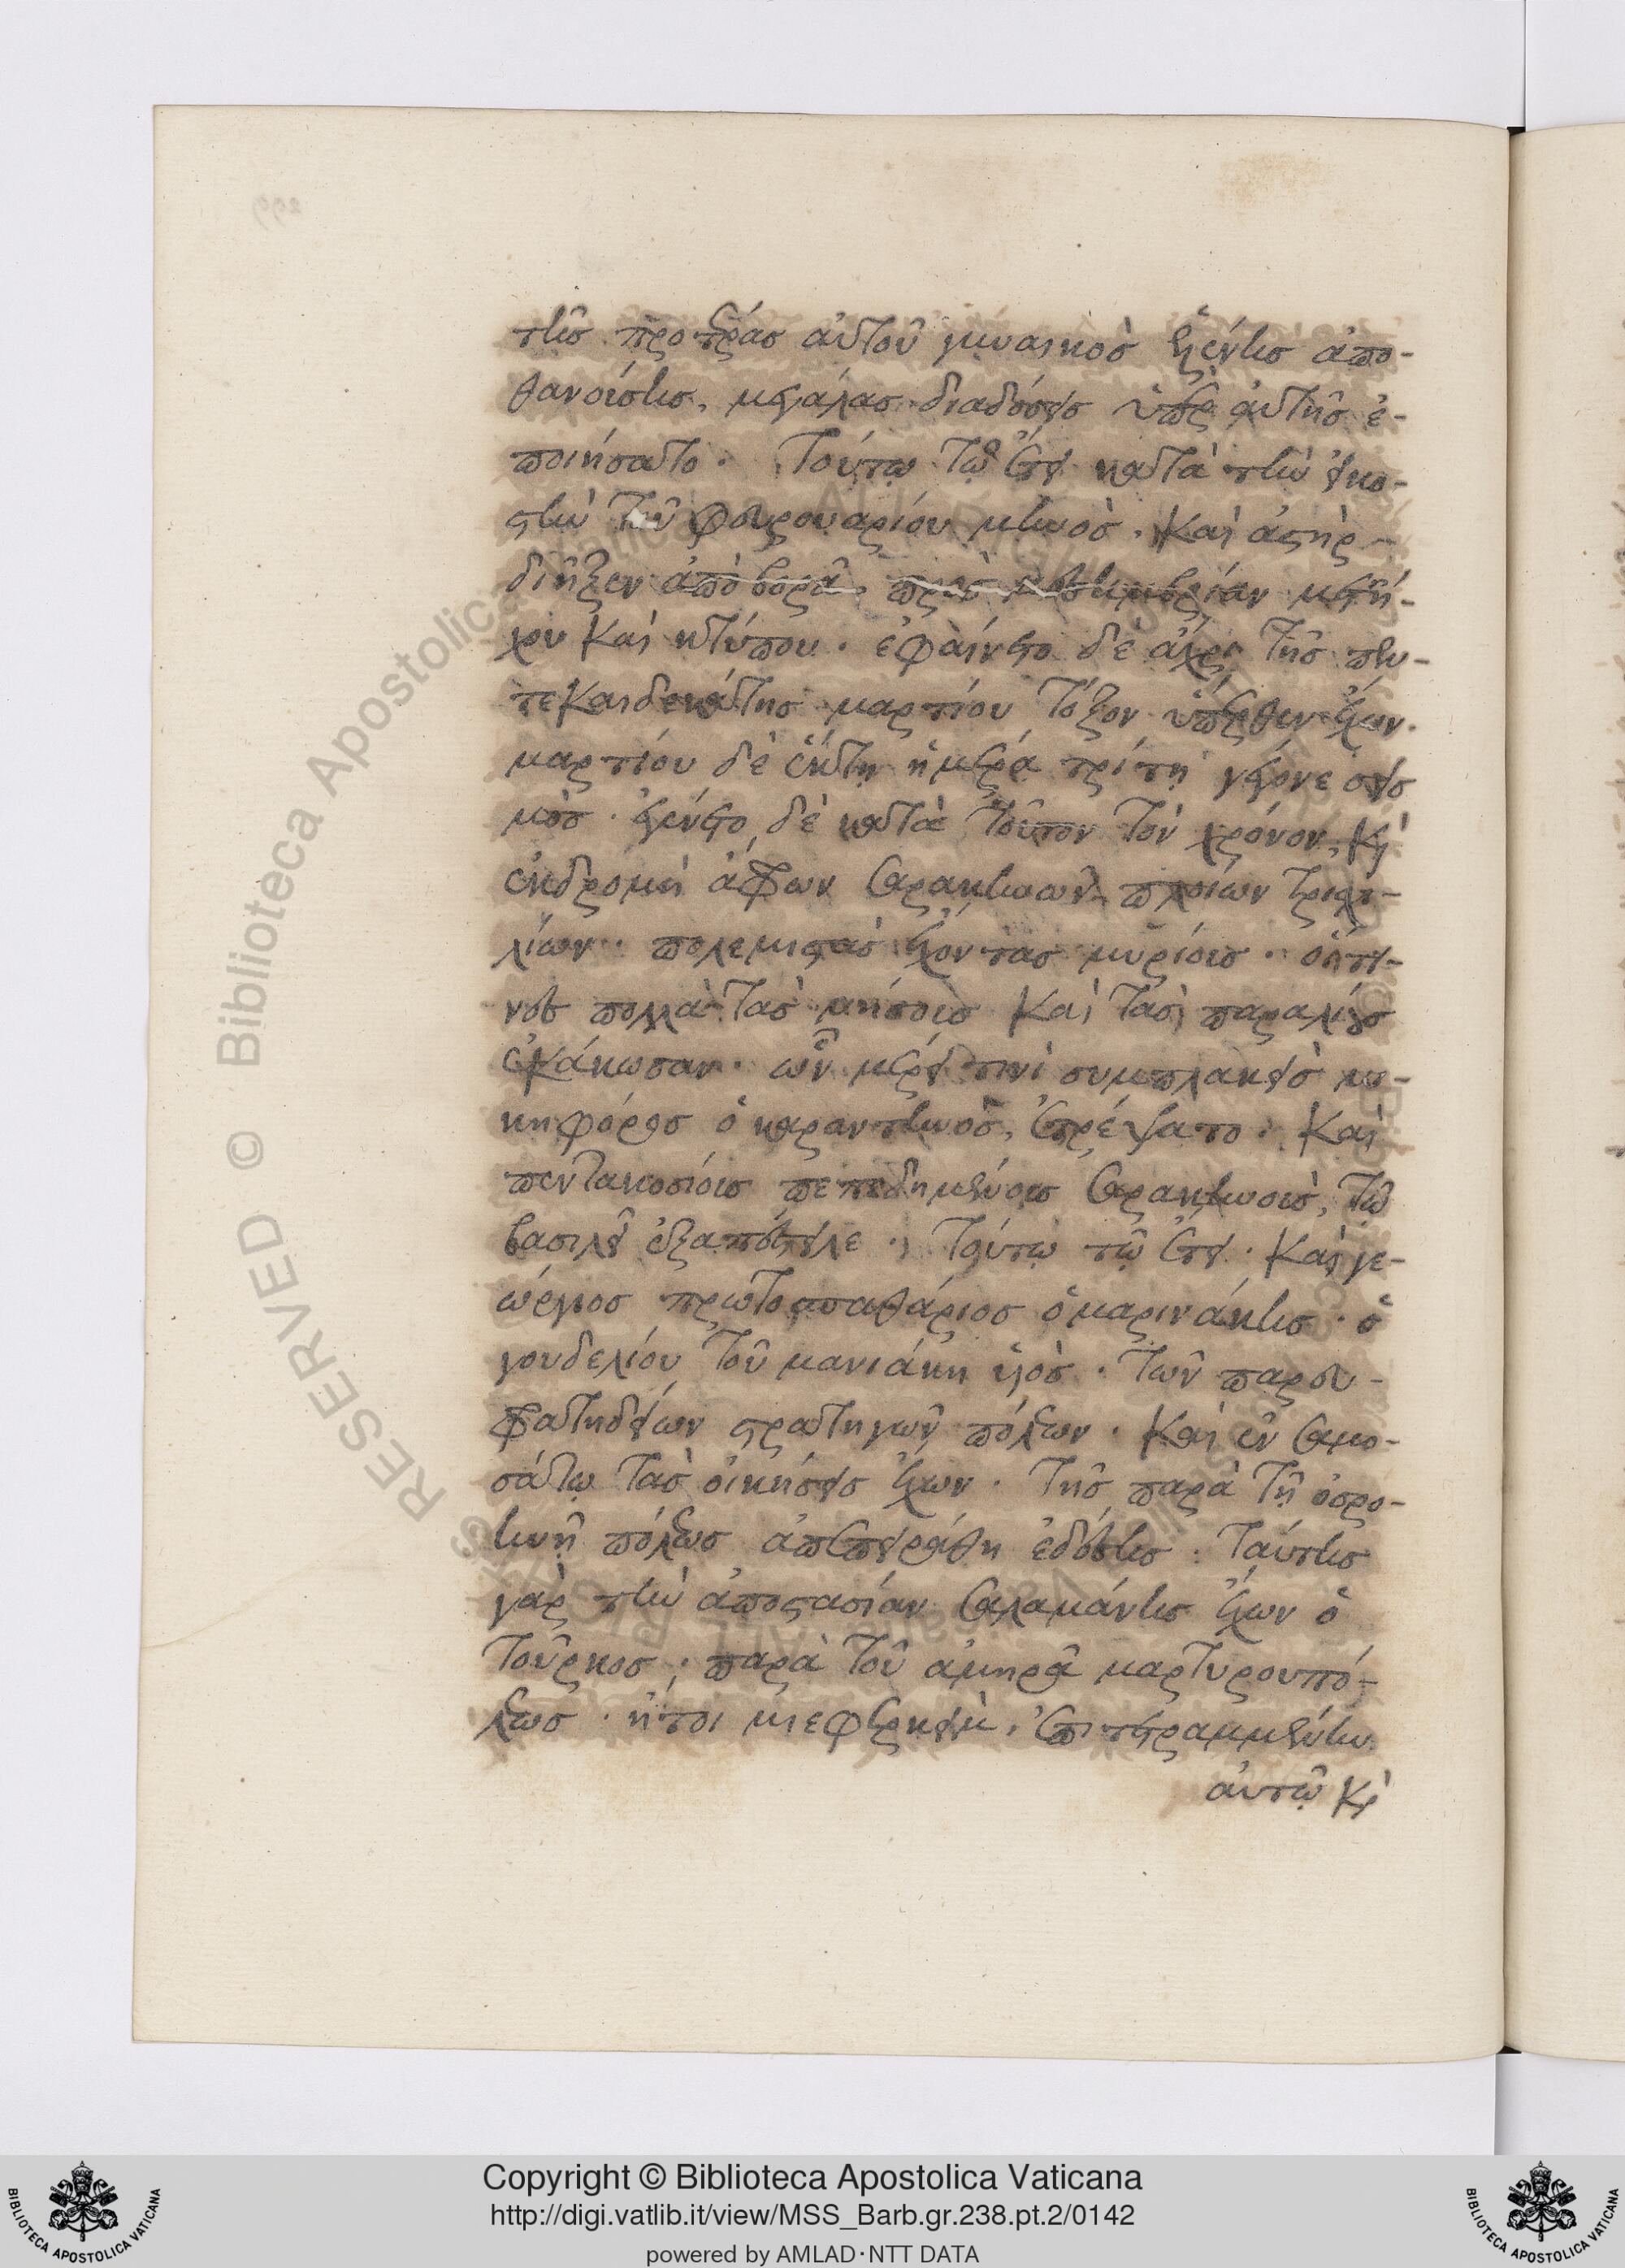 της προτέρας αὐτοῦ γυναικὸς ἑλένης ἀπο-
θανούσης, μεγάλας διαδόσεις ὑπὲρ αὐτῆς ἐ-
ποιήσατο. Τούτῳ τῷ ἔτει κατὰ τὴν εἰκο-
στὴν τοῦ φευρουαρίου μηνὸς. καὶ ἀστὴρ
διῆξεν ἀπὸ βορᾶ πρὸς μεσημβρίαν μετ' ἤ-
χου καὶ κτύπου. ἐφαίνετο δὲ ἄχρι τῆς πεν-
τεκαιδεκάτης μαρτίου τόξον ὕπερθεν ἔχων.
μαρτίου δὲ ἕκτῃ ἡμέρα τρίτῃ γέγονε σεισ
μὸς. ἐγένετο δὲ κατὰ τοῦτον τὸν χρόνον, καὶ
ἐκδρομὴ ἄφρων σαρακηνῶν πλοίων τριχι-
λίων. πολεμιστὰς ἔχοντας μυρίους. οἵτι-
νες πολλὰ τὰς νήσους καὶ τὰς παραλίους
ἐκάκωσαν. ὧν μέρει τινὶ συμπλακεὶς νι-
κηφόρος ὁ καραντηνὸς, ἐτρέψατο. καὶ
πεντακοσίους πεπεδημένους σαρακηνοὺς, τῷ
βασιλεῖ ἐξαπέστειλε. Τούτῳ τῷ ἔτει. καὶ γε-
ώργιος πρωτοσπαθάριος ὁ μαρινάκης. ὁ
γουδελίου τοῦ μανιάκη υἱὸς. τῶν παρευ-
φρατηδείων στρατηγῶν πόλεων. καὶ ἐν σαμο-
σάτῳ τὰς οἰκήσεις ἔχων. τῆς παρὰ τῇ ὀσρο-
ηνῇ πόλεως ἀπεπειράθη ἐδέσης. ταύτης
γὰρ τὴν ἀποστασίαν σαλαμάνης ἔχων ὁ
τοῦρκος, παρὰ τοῦ ἀμηρᾶ μαρτυρουπό-
λεως. ἤτοι μιεφερκεὶμ, ἐπιτετραμμένην
αὐτῷ καὶ